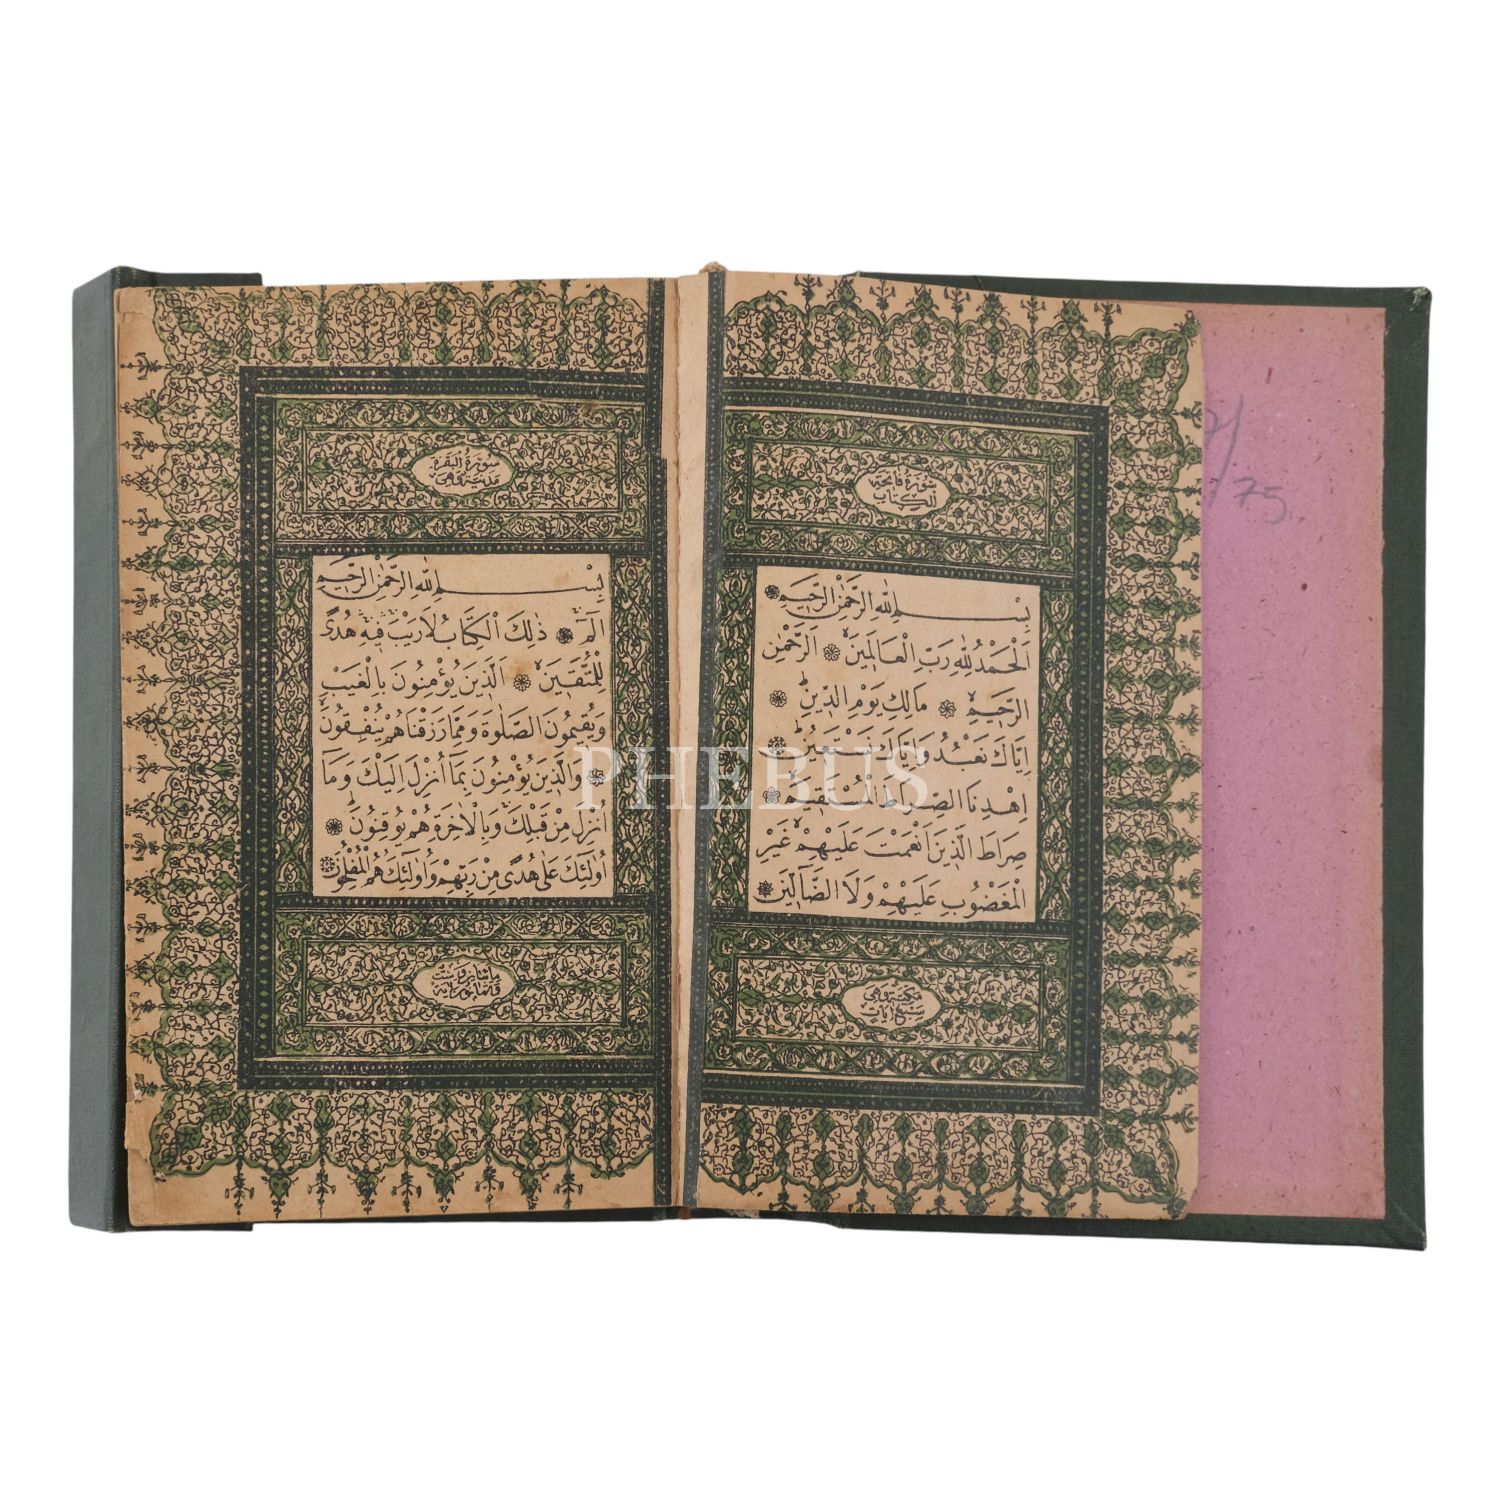 سورة فاتحة
الكتاب
بِسْمِ اللهِ الرَّحْمٰنِ الرَّحِيمِ
اَلْحَمْدُ لِلّٰهِ رَبِّ الْعَالَمِينَ اَلرَّحْمٰنِ
الرَّحِيمِ مَالِكِ يَوْمِ الدِّينِ
اِيَّاكَ نَعْبُدُ وَاِيَّاكَ نَسْتَعِينُ
اِهْدِنَا الصِّرَاطَ الْمُسْتَقِيمَ
صِرَاطَ الَّذِينَ اَنْعَمْتَ عَلَيْهِمْ غَيْرِ
الْمَغْضُوبِ عَلَيْهِمْ وَلَا الضَّٓالِّينَ
مكية وهي
سبع آيات
سورة البقرة
مدنية وهي
بِسْمِ اللهِ الرَّحْمٰنِ الرَّحِيمِ
الٓمٓ ذٰلِكَ الْكِتَابُ لَا رَيْبَ فِيهِ هُدًى
لِلْمُتَّقِينَ اَلَّذِينَ يُؤْمِنُونَ بِالْغَيْبِ
وَيُقِيمُونَ الصَّلٰوةَ وَمِمَّا رَزَقْنَاهُمْ يُنْفِقُونَ
وَالَّذِينَ يُؤْمِنُونَ بِمَٓا اُنْزِلَ اِلَيْكَ وَمَٓا
اُنْزِلَ مِنْ قَبْلِكَ وَبِالْاٰخِرَةِ هُمْ يُوقِنُونَ
اُولٰٓئِكَ عَلٰى هُدًى مِنْ رَبِّهِمْ وَاُولٰٓئِكَ هُمُ الْمُفْلِحُونَ
مائتان وست
وثمانون آية
PHEBUS
/75